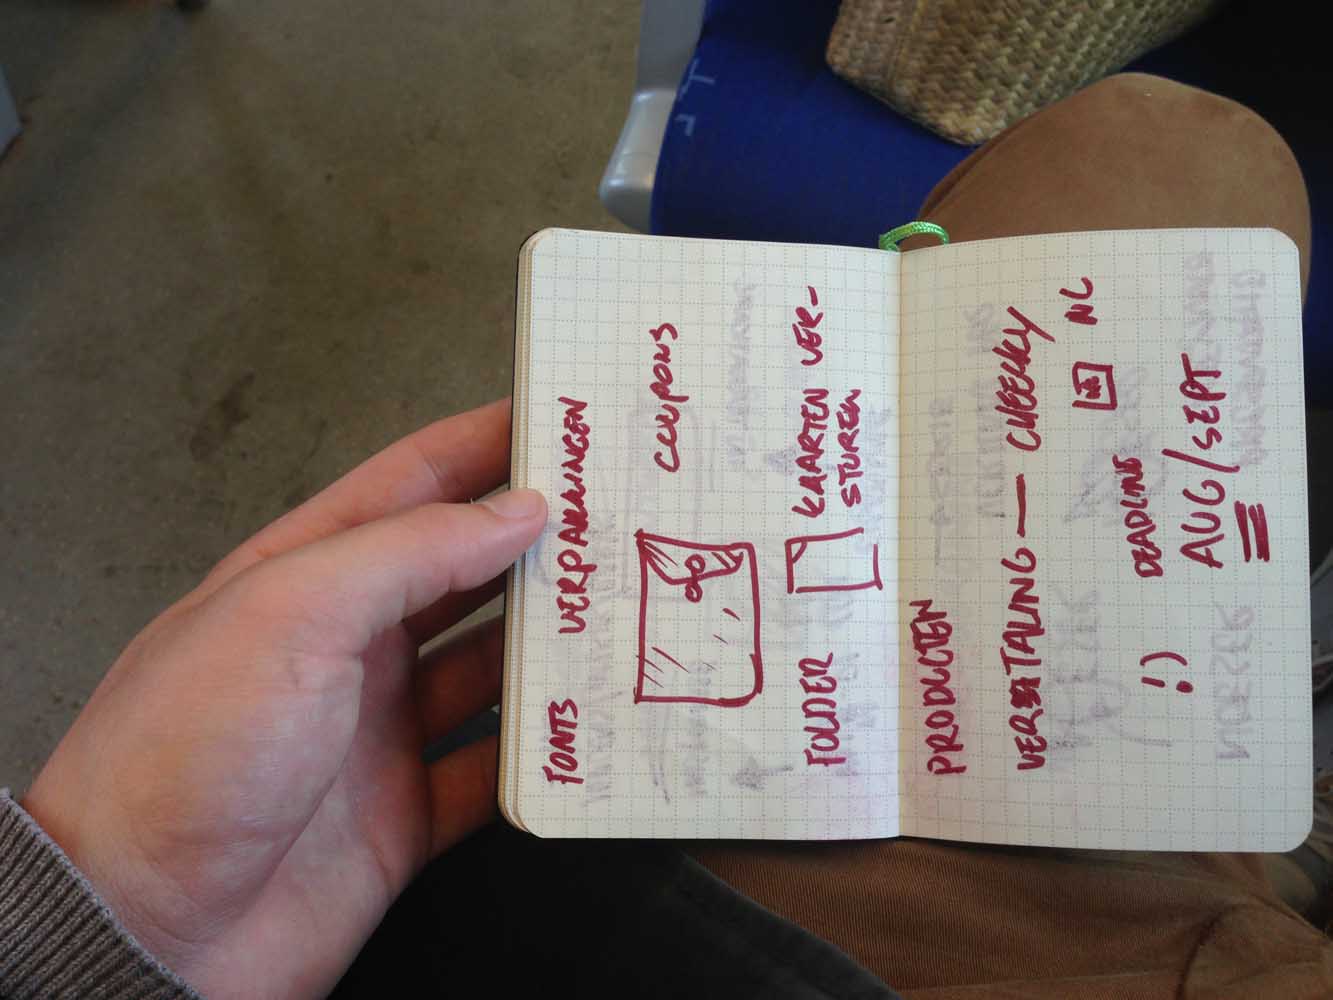 FONTS VERPAKKINGEN
COUPONS
FOLDER KAARTEN VER-
STUREN
PRODUCTEN
VERTALING — CHEEKY
NL
DEADLINE
:) AUG/SEPT